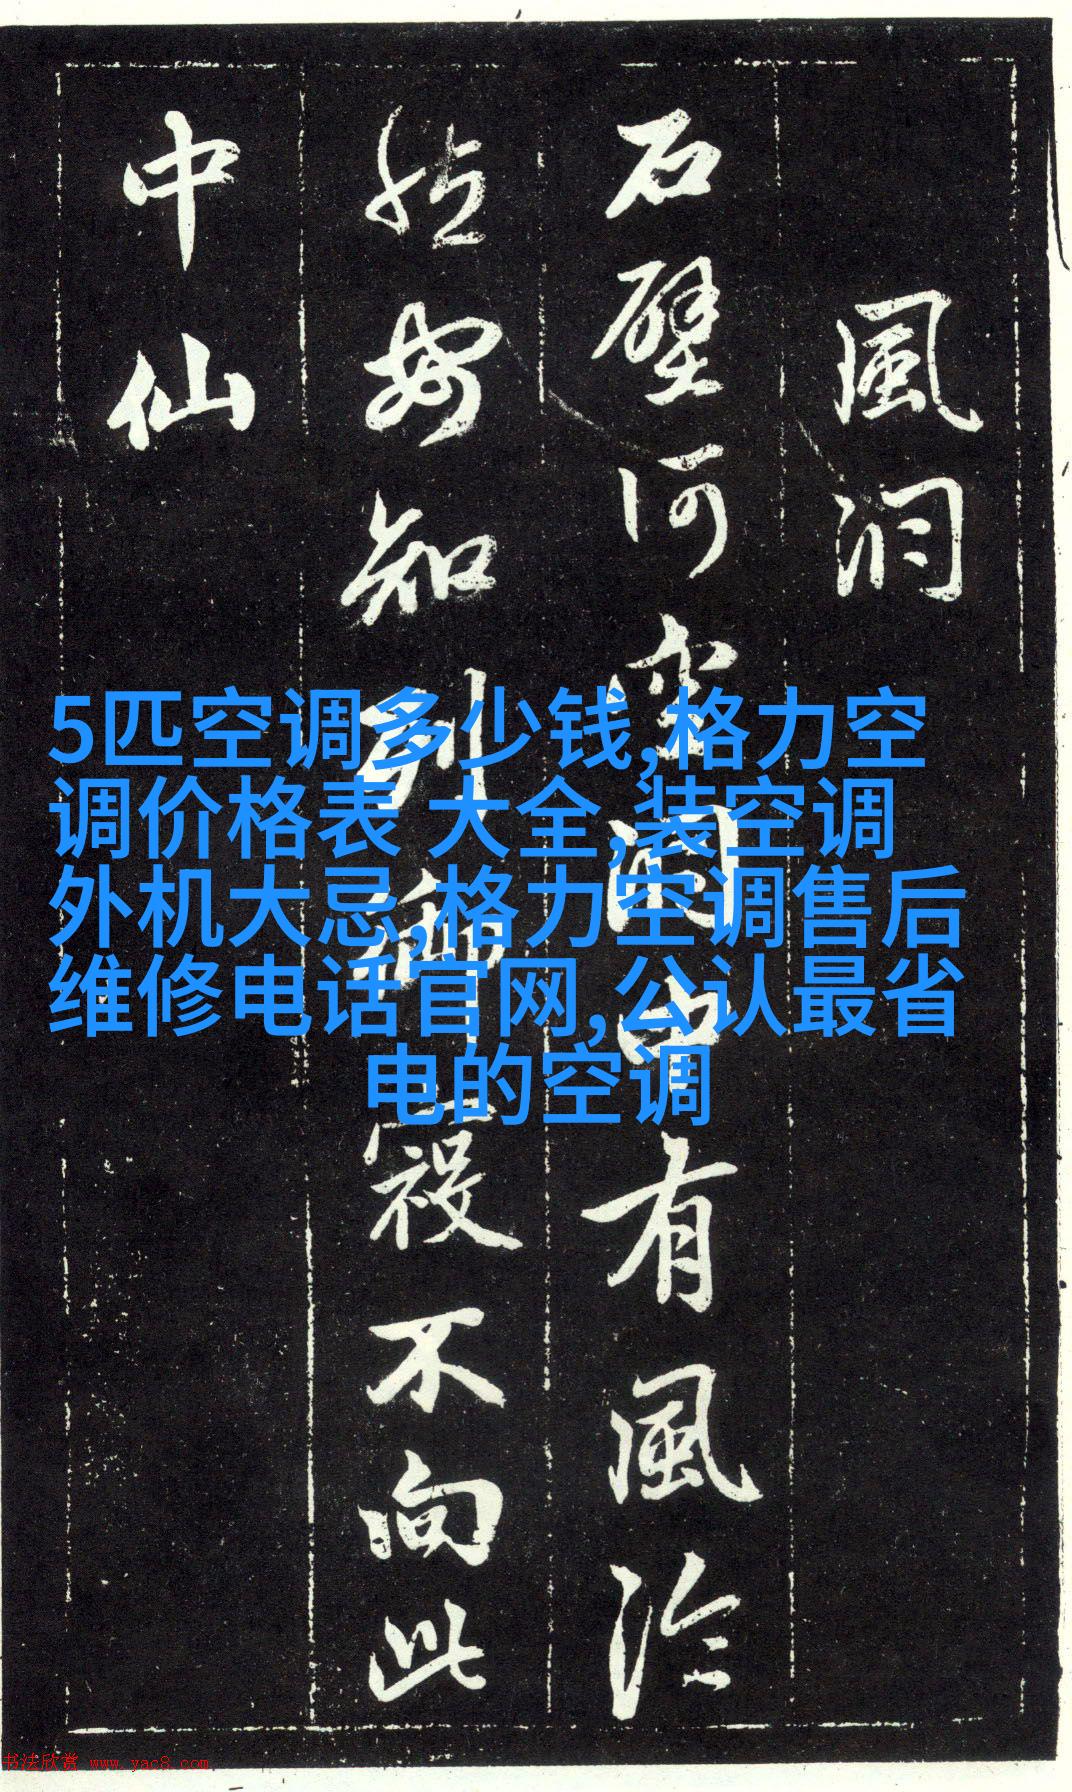 風洞
石壁何空閴由有風泠
然安知列禦寇不向此
中仙
5匹空调多少钱,格力空
调价格表 大全,装空调
外机大忌,格力空调售后
维修电话官网,公认最省
电的空调
书法欣赏 www.yac8.com